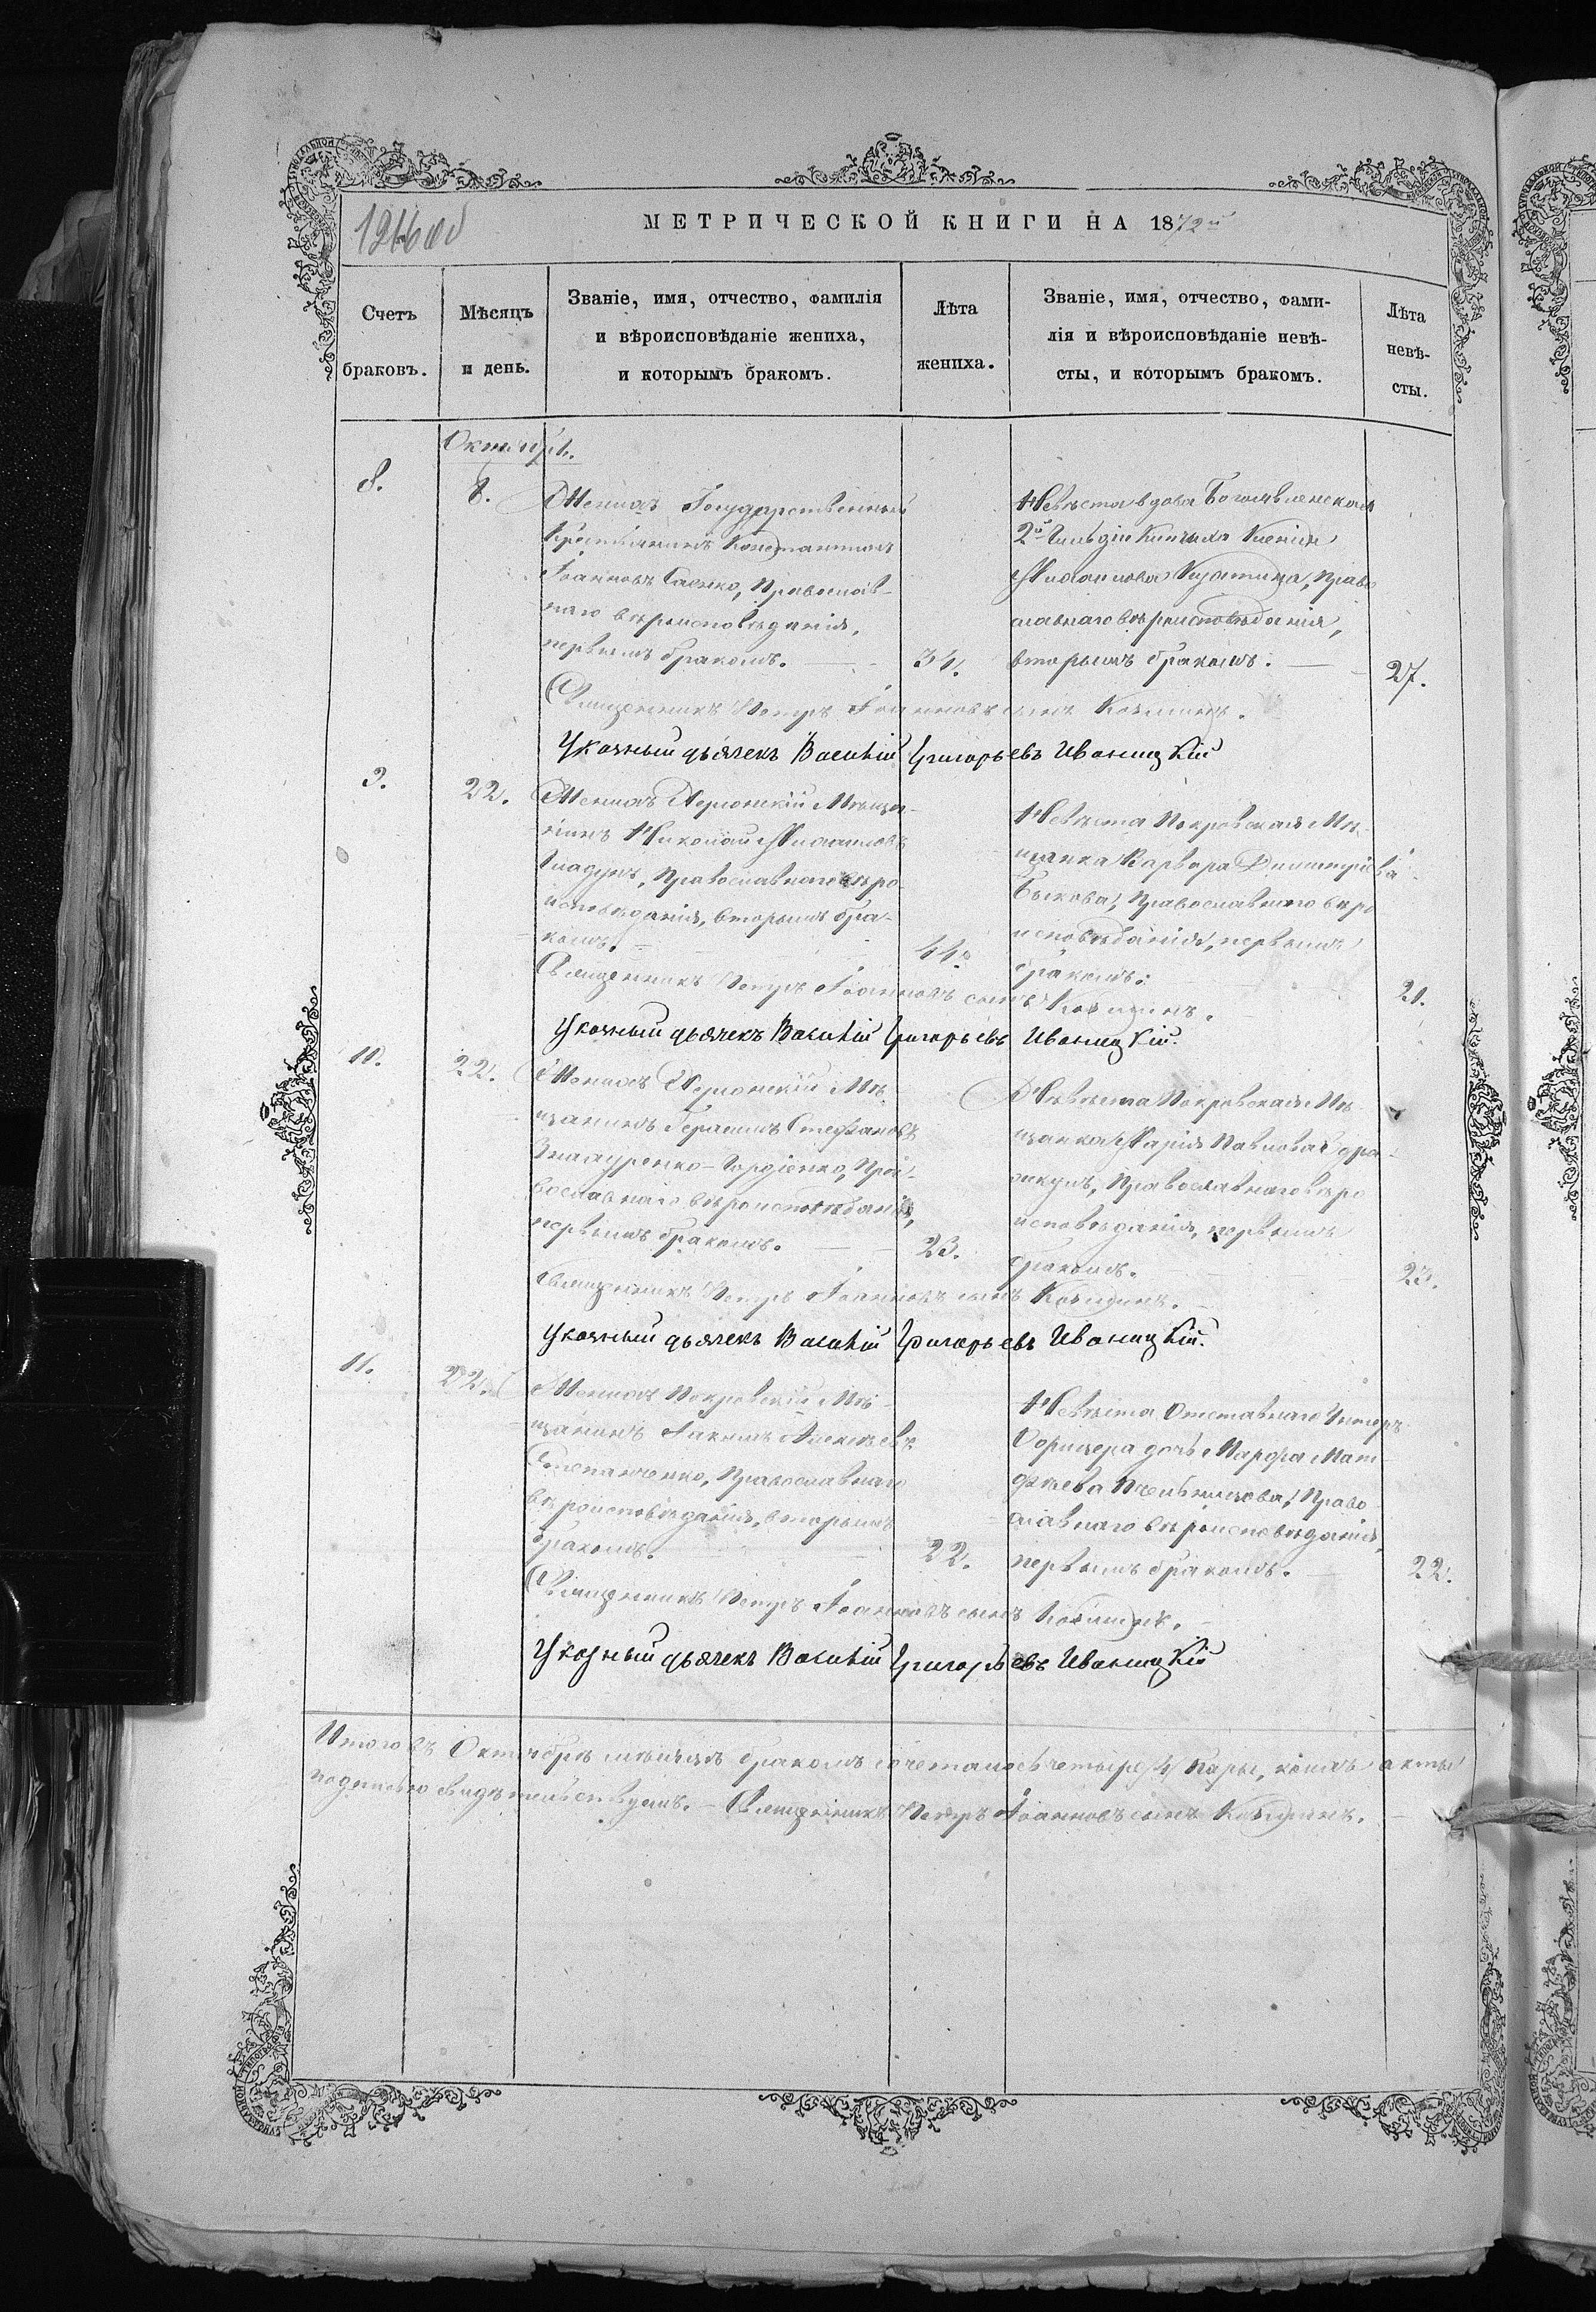 МЕТРИЧЕСКОЙ КНИГИ НА 1872й
Счетъ браковъ.
Мѣсяцъ и день.
Званіе, имя, отчество, фамилія
и вѣроисповѣданіе жениха,
и которымъ бракомъ.
Лѣта жениха.
Званіе, имя, отчество, фами-
лія и вѣроисповѣданіе невѣ-
сты, и которымъ бракомъ.
Лѣта невѣ-
сты.
Октябрь.
8.
8.
Женихъ Государственный
Крестьянинъ Константинъ
Іоанновъ Саенко, Православ-
наго вѣроисповѣданія,
первымъ бракомъ.
34.
Невѣста вдова Богоявленская
2й Гильдіи Купчиха Ксенія
Православнаго вѣроисповѣданія,
вторымъ бракомъ.
27.
Священникъ Петръ Іоанновъ сынъ
Указный дьячекъ Василій Григорьевъ Иваницкій
9.
22.
Женихъ Херсонскій Мѣща-
нинъ Николай
Гладунъ, Православнаго вѣро
исповѣданія, вторымъ бра-
комъ.
44.
Невѣста Покровская Мѣ-
щанка Варвара Димитріева
Быкова, Православнаго вѣро
исповѣданія, первымъ
бракомъ.
21.
Священникъ Петръ Іоанновъ сынъ
Указный дьячекъ Василій Григорьевъ Иваницкій.
10.
22.
Женихъ Херсонскій Мѣ-
щанинъ Герасимъ Стефановъ
Гордіенко, Пра-
вославнаго вѣроисповѣданія,
первымъ бракомъ.
23.
Невѣста Покровская Мѣ-
щанка Марія Павлова
Православнаго вѣро
исповѣданія, первымъ
бракомъ.
23.
Священникъ Петръ Іоанновъ сынъ
Указный дьячекъ Василій Григорьевъ Иваницкій.
11.
22.
Женихъ Покровскій Мѣ-
щанинъ Іакимъ Алексѣевъ
Степанченко, Православнаго
вѣроисповѣданія, вторымъ
бракомъ.
22.
Невѣста Отставнаго Унтеръ
Офицера дочь Марфа Мат-
фѣева Православнаго вѣроисповѣданія,
первымъ бракомъ.
22.
Священникъ Петръ Іоанновъ сынъ
Указный дьячекъ Василій Григорьевъ Иваницкій
Итого въ Октябрѣ мѣсяцѣ бракомъ сочеталось четыре /4/ пары, коихъ акты
подписью свидѣтельствуемъ. – Священникъ Петръ Іоанновъ сынъ